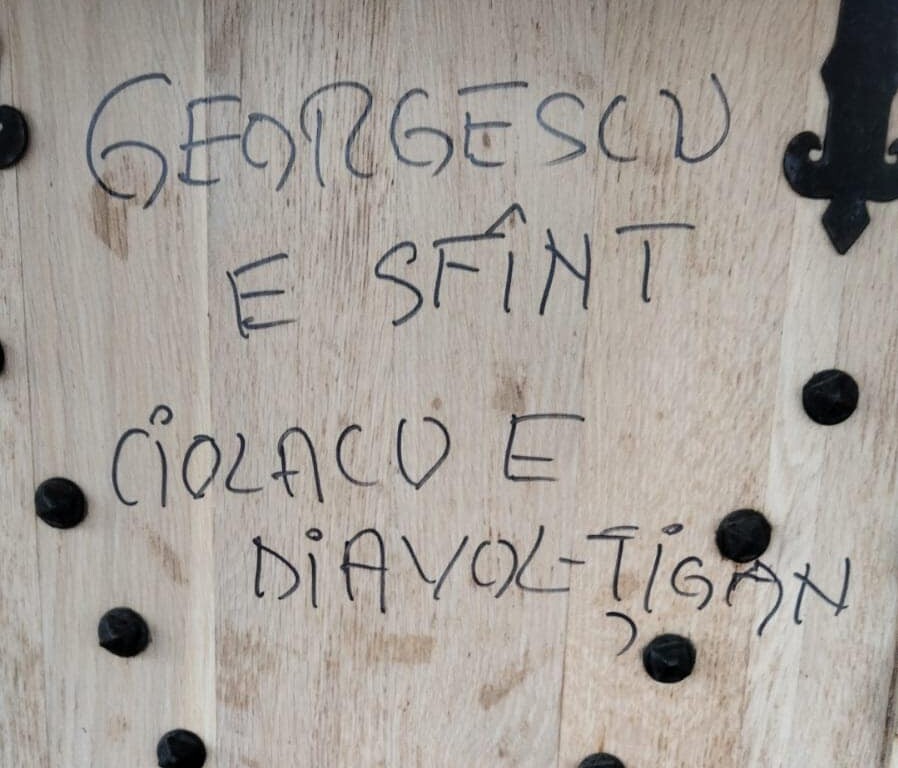 GEORGESCU
E SFÎNT
CIOLACU E
DIAVOL-ȚIGAN